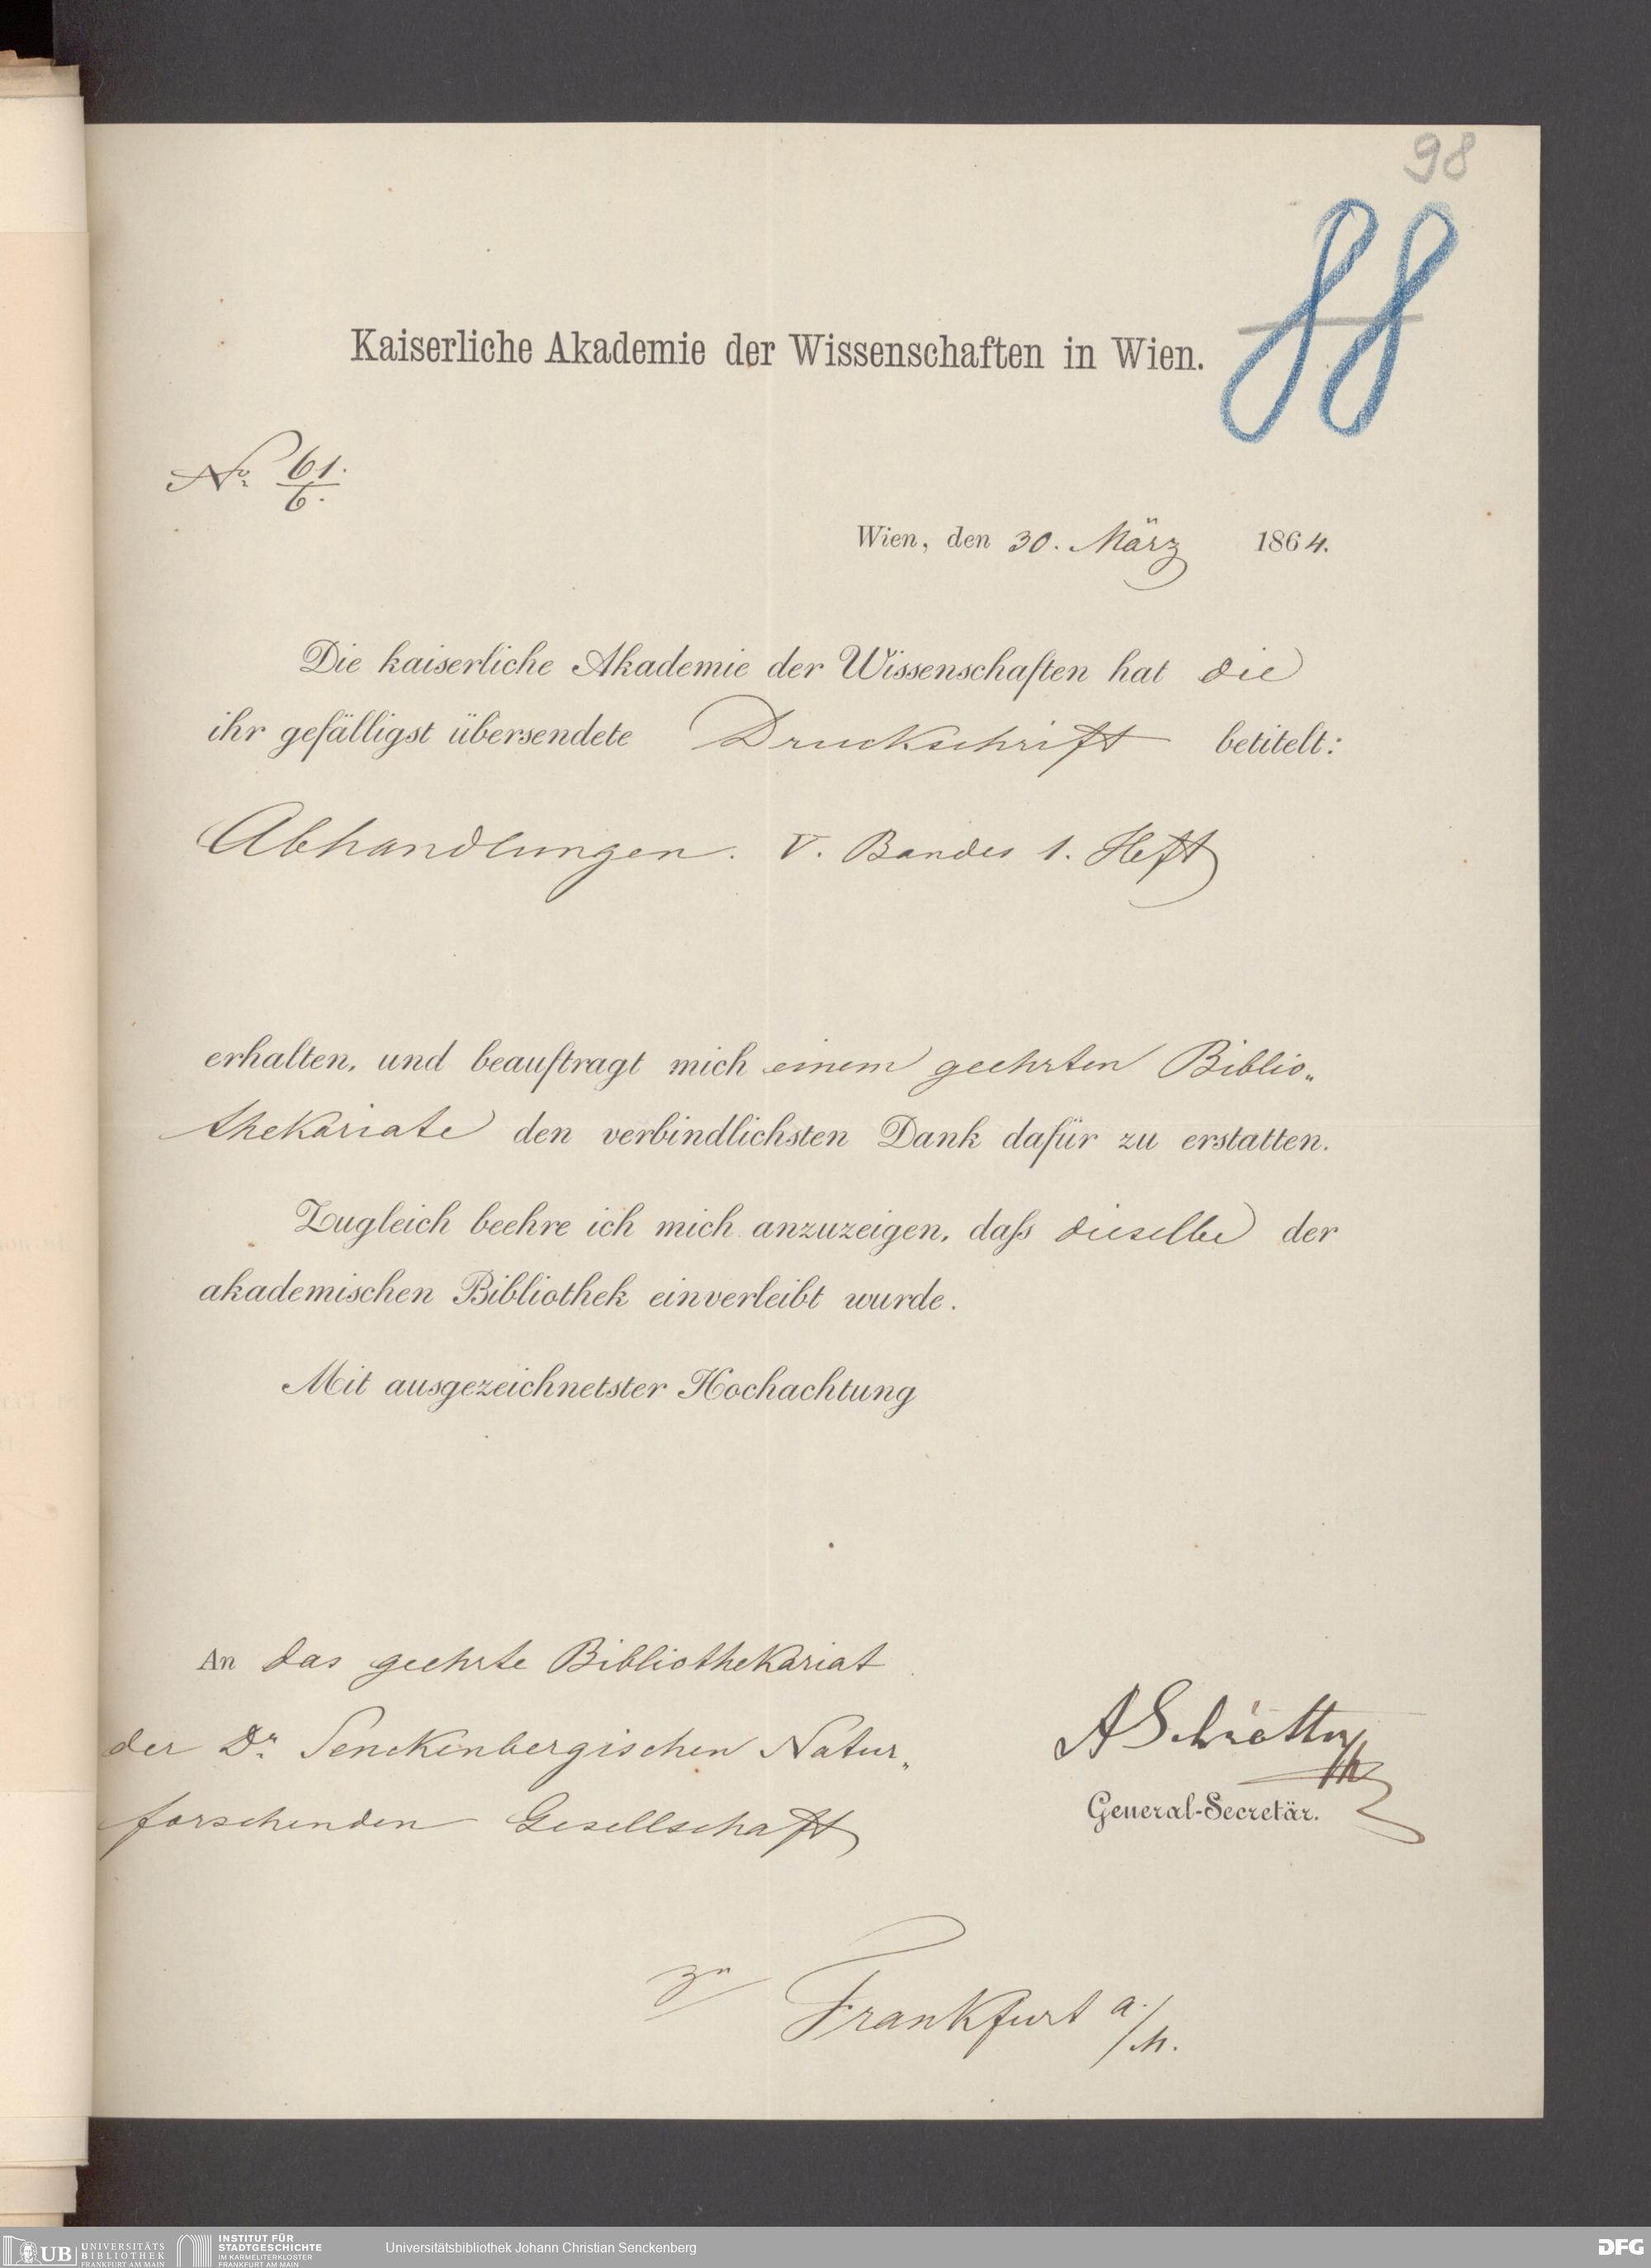 98
88
Kaiserliche Akademie der Wissenschaften in Wien.
Nr. 61./6.
Wien, den 30. März 1864.
Die kaiserliche Akademie der Wissenschaften hat die
ihr gefälligst übersendete Druckschrift betitelt:
Abhandlungen. V. Bandes 1. Heft
erhalten, und beauftragt mich einem geehrten Biblio„
thekariate den verbindlichsten Dank dafür zu erstatten.
Zugleich beehre ich mich anzuzeigen, daſs dieselbe der
akademischen Bibliothek einverleibt wurde.
Mit ausgezeichnetster Hochachtung
An das geehrte Bibliothekariat
der Dr. Senckenbergischen Natur„
forschenden Gesellschaft
ASchrötter
General-Secretär.
zu Frankfurt a./M.
UB UNIVERSITÄTS
BIBLIOTHEK
FRANKFURT AM MAIN
INSTITUT FÜR
STADTGESCHICHTE
IM KARMELITERKLOSTER
FRANKFURT AM MAIN
Universitätsbibliothek Johann Christian Senckenberg
DFG